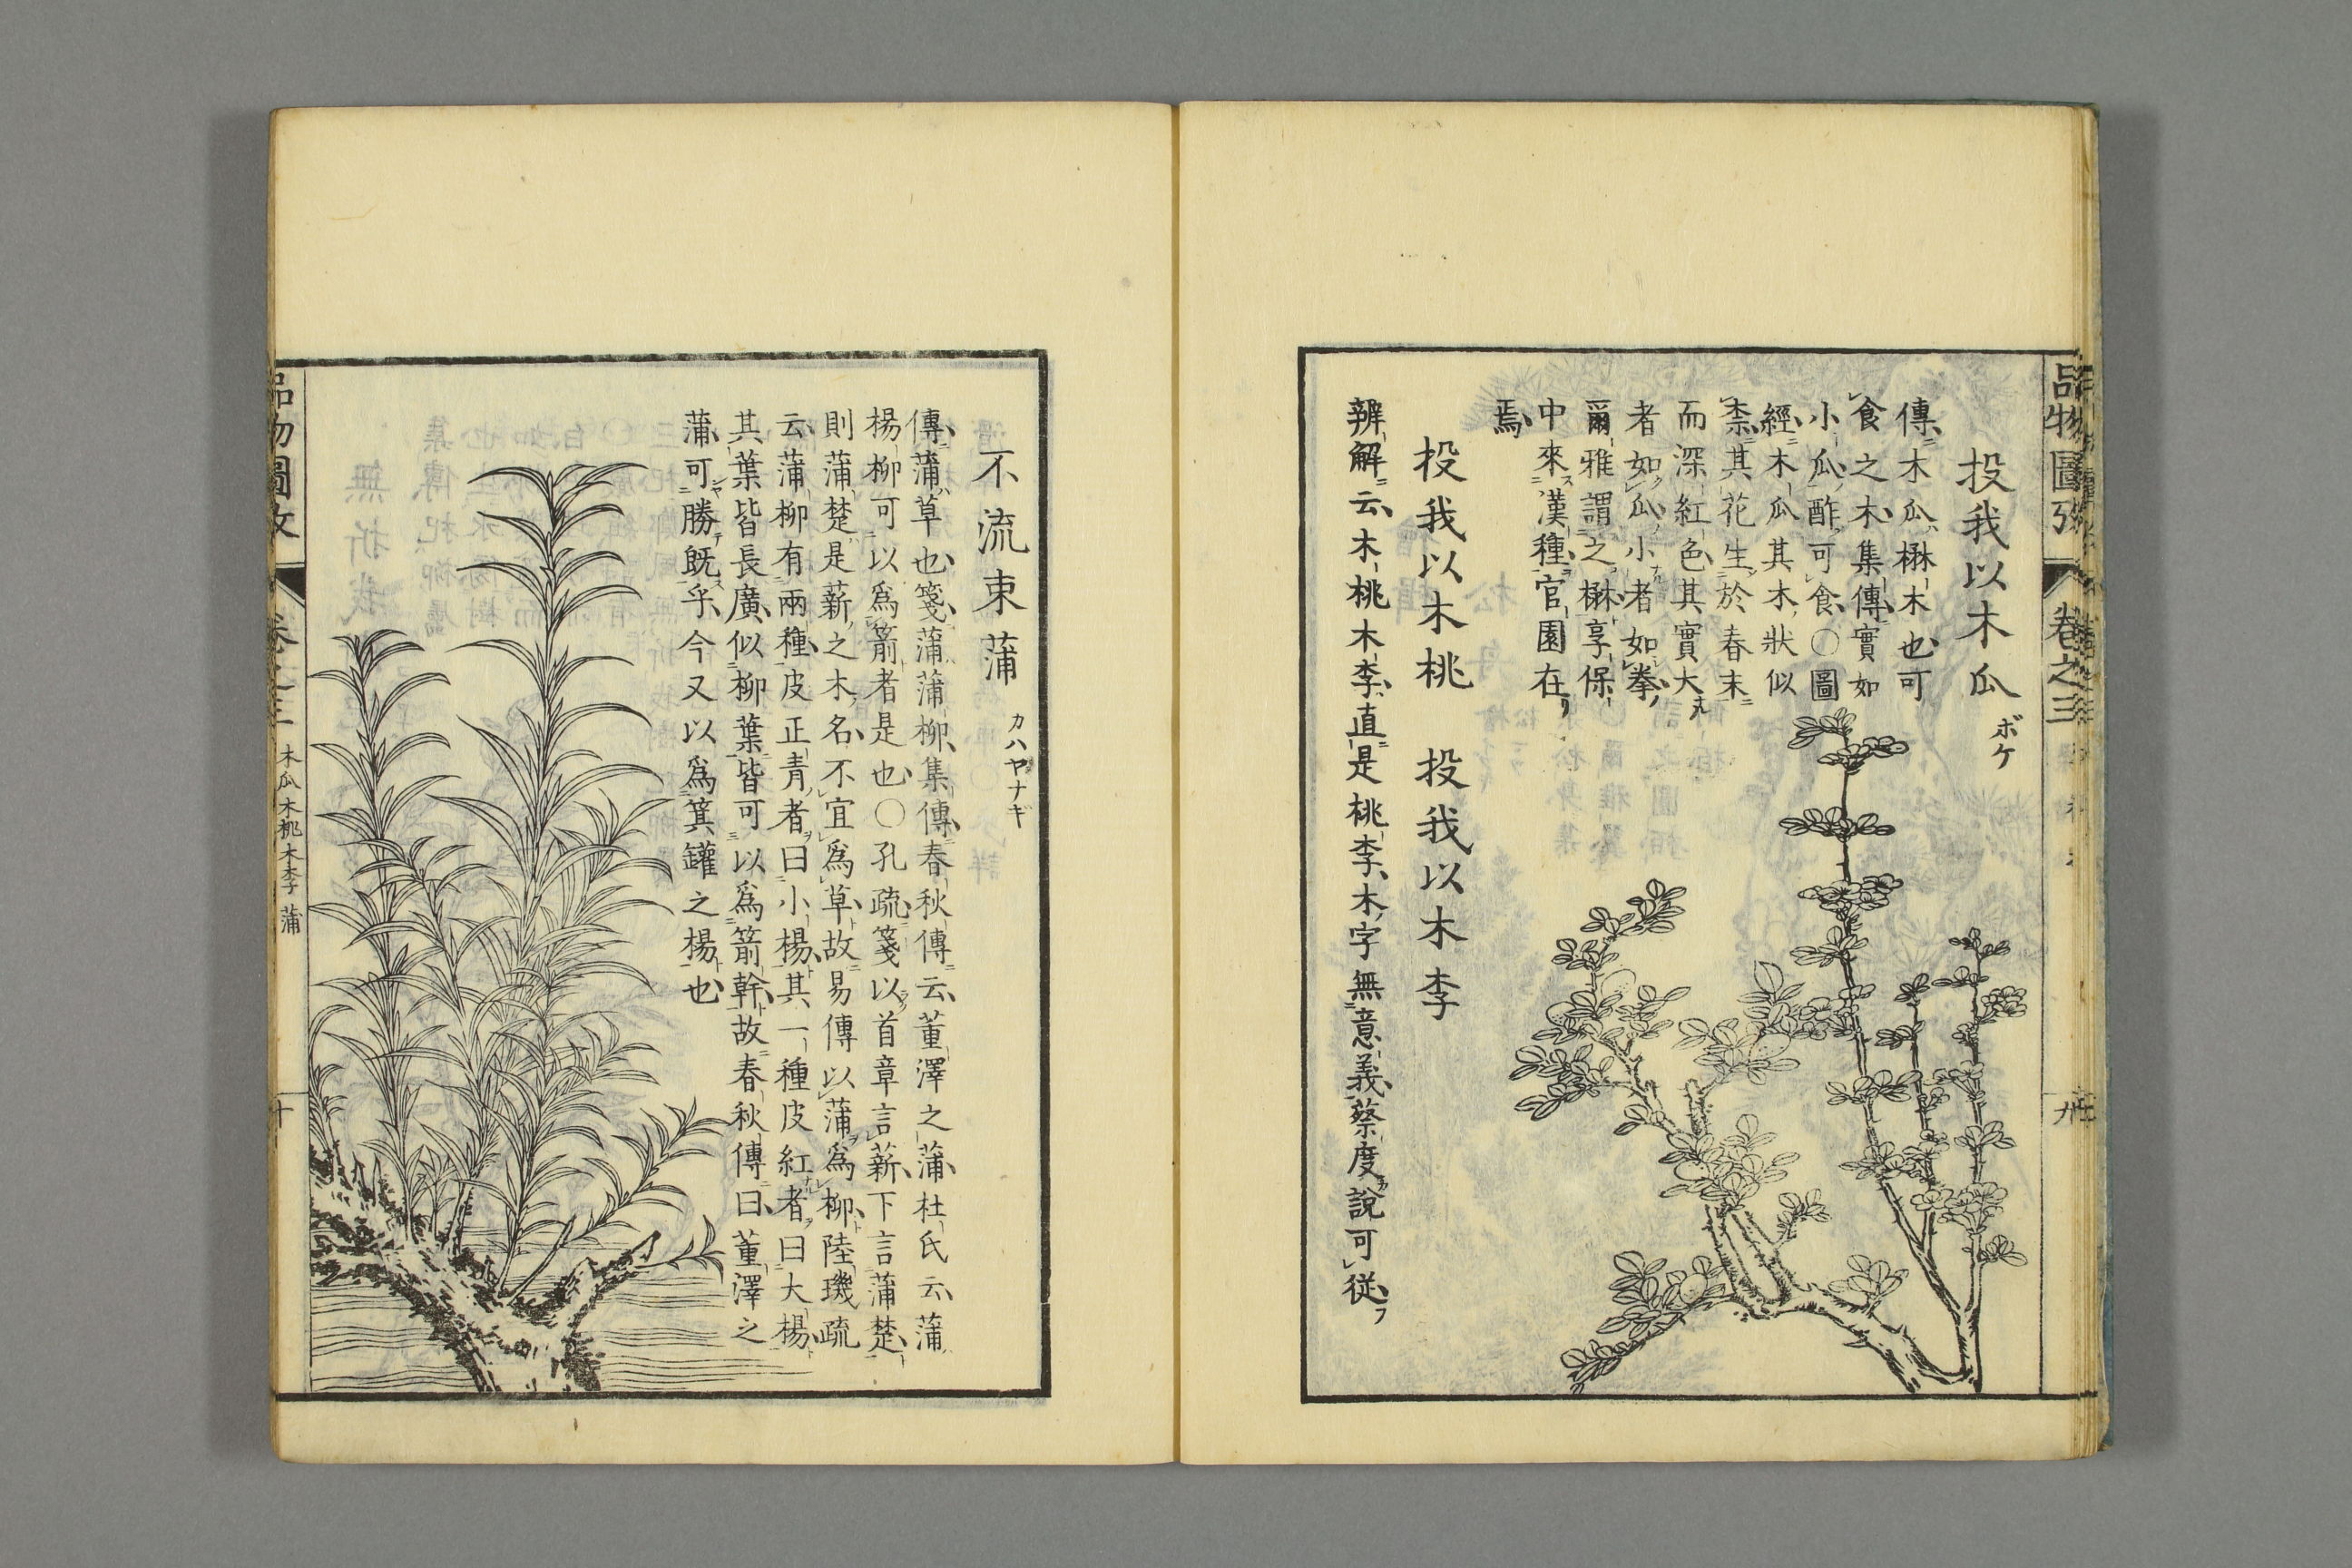 品物圖攷
卷之三
九
投我以木瓜 ボケ
傳木瓜楙木也可
食之木集傳實如
小瓜酢可食〇圖
經木瓜其木狀似
柰其花生於春末
而深紅色其實大
者如瓜小者如拳
爾雅謂之楙享保
中來漢種官園在
焉
投我以木桃 投我以木李
辨解云木桃木李直是桃李木字無意義蔡度說可從
不流束蒲 カハヤナギ
傳蒲草也箋蒲蒲柳集傳春秋傳云董澤之蒲杜氏云蒲
楊柳可以爲箭者是也〇孔疏箋以首章言薪下言蒲楚
則蒲楚是薪之木名不宜爲草故易傳以蒲爲柳陸璣疏
云蒲柳有兩種皮正青者曰小楊其一種皮紅者曰大楊
其葉皆長廣似柳葉皆可以爲箭幹故春秋傳曰董澤之
蒲可勝既乎今又以爲箕罐之楊也
品物圖攷
卷之三
木瓜 木桃 木李 蒲
十